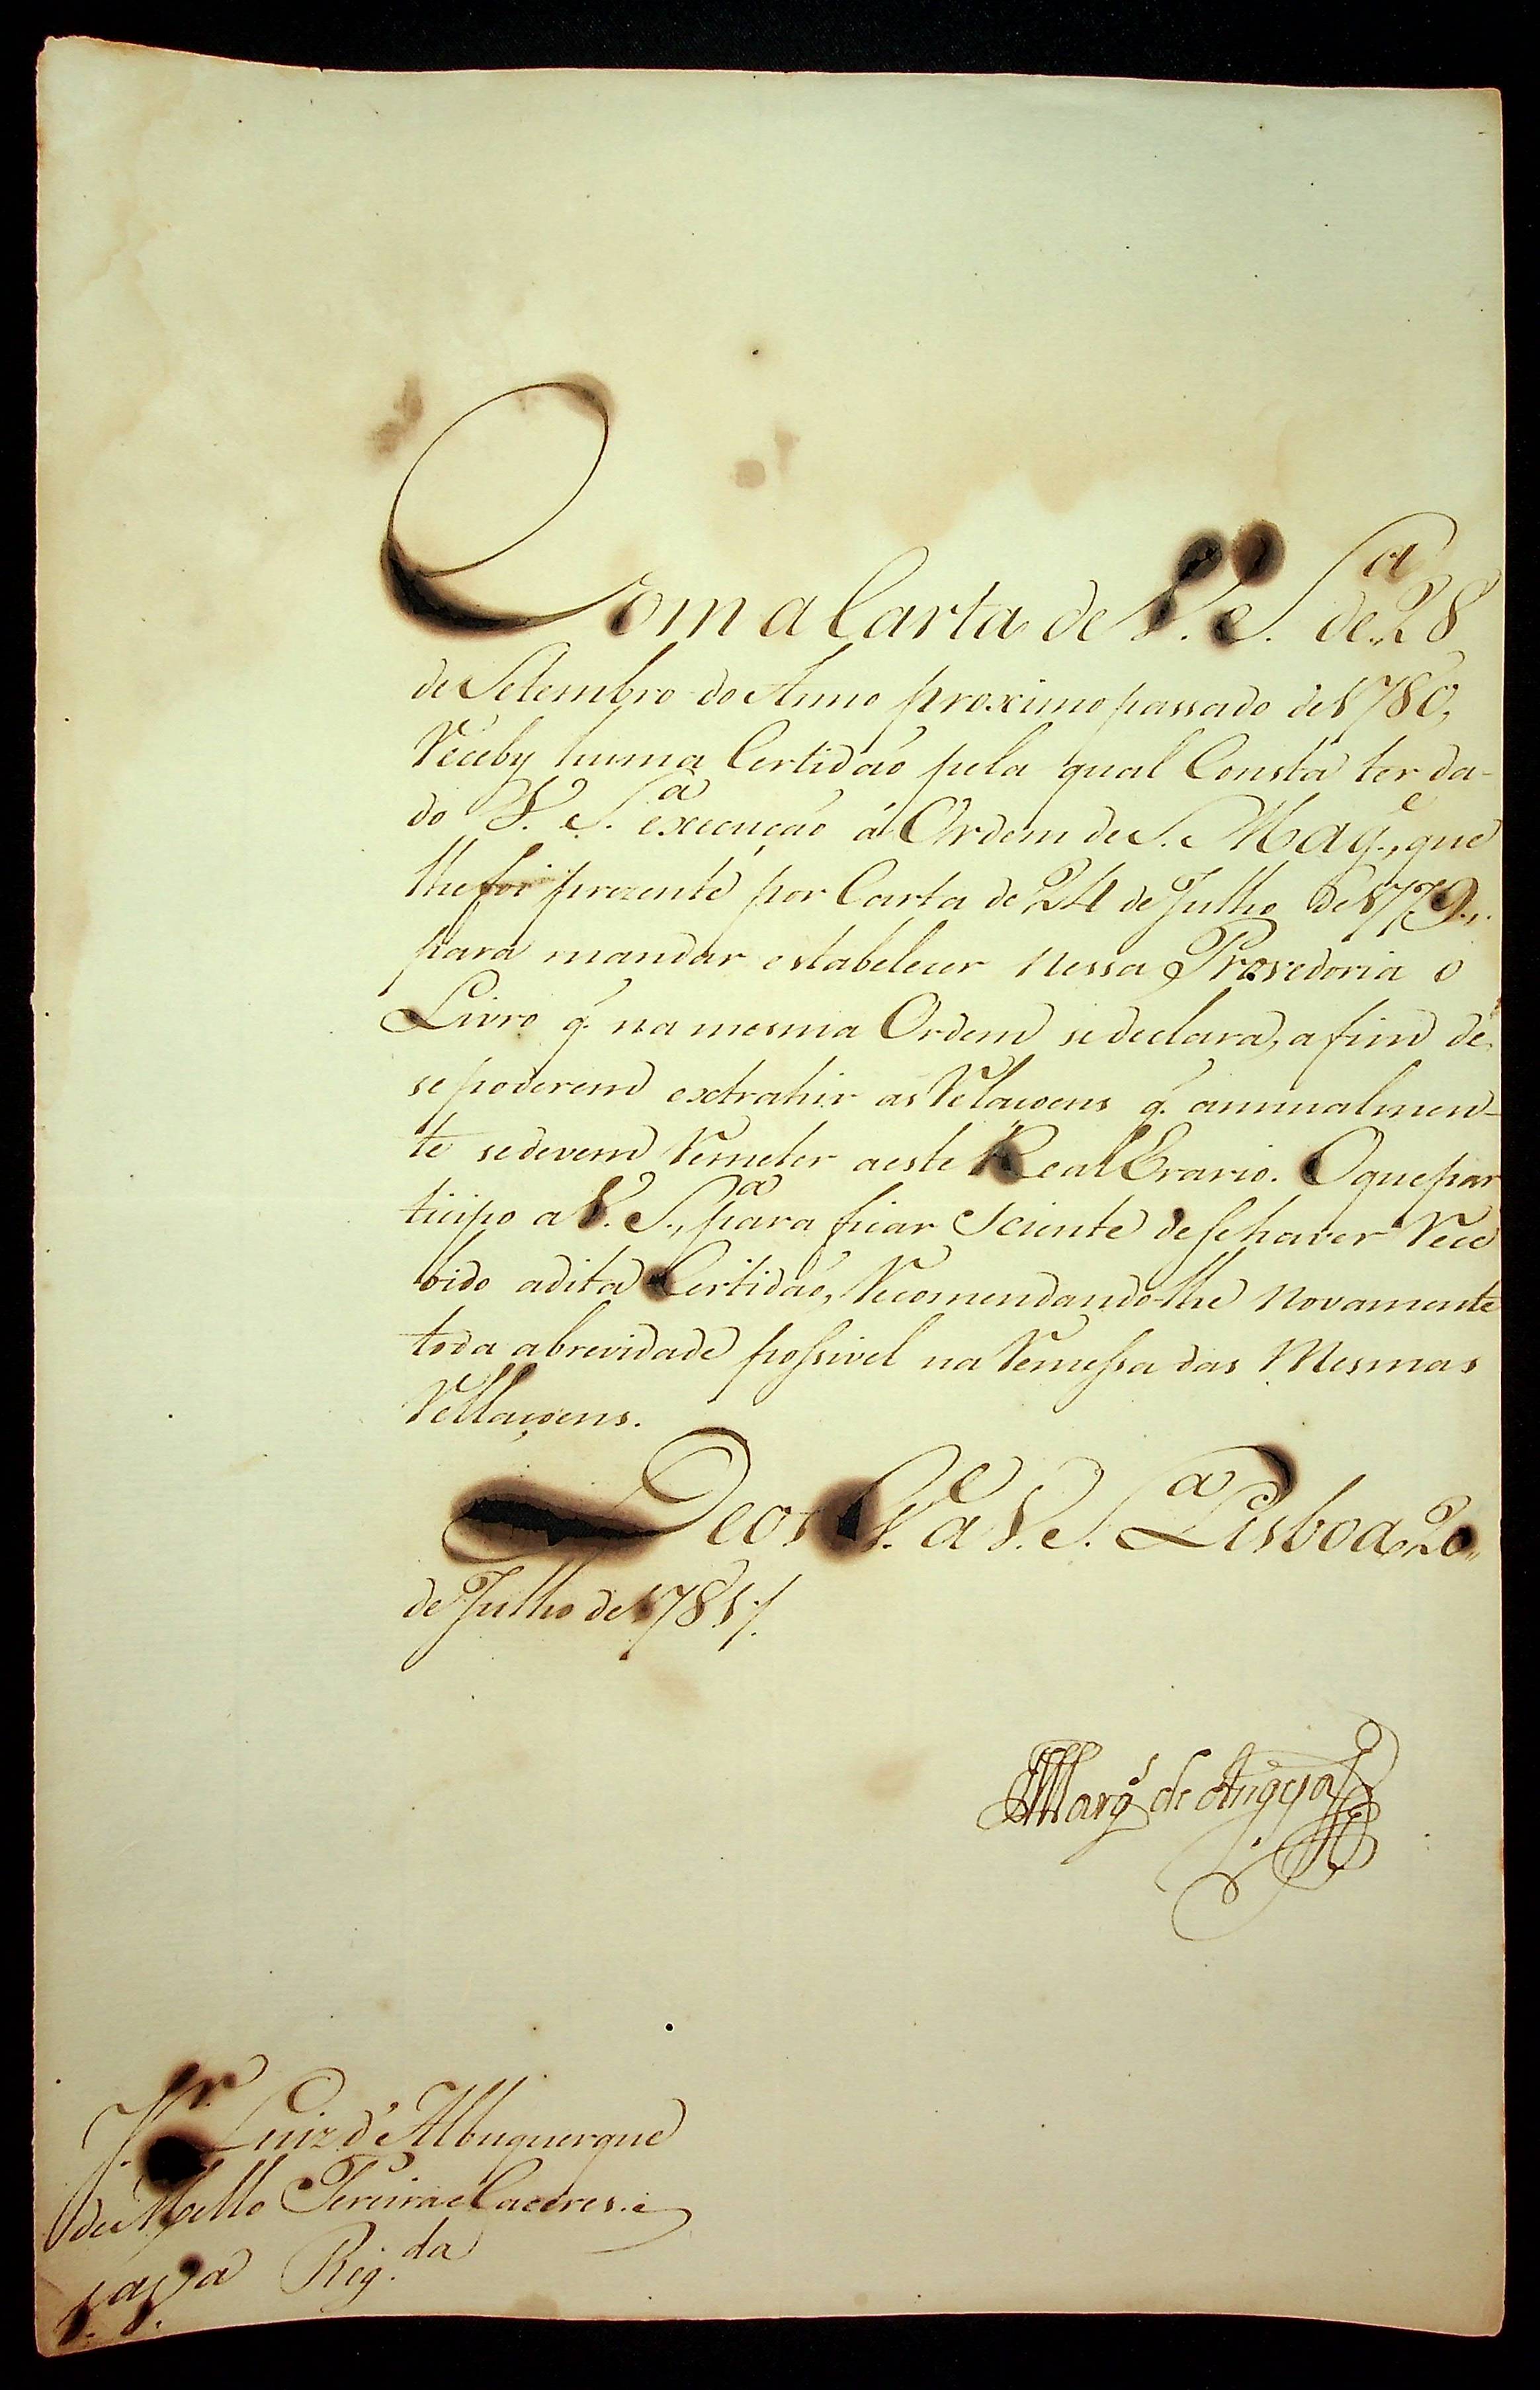 Com a Carta de V. S.ª de 28
de Setembro do Anno proximo passado de 1780,
Receby huma Certidaõ pela qual Consta ter da-
do V. S.ª execuçaõ á Ordem de S. Mag.e, que
lhe foi prezente por Carta de 24 de Julho de 1779.,
para mandar estabelecer nessa Provedoria o
Livro q. na mesma Ordem se declara, a fim de
se poderem extrahir as Relaçoens q. annualmen-
te se devem Remeter a este Real Erario. O que par
ticipo a V. S.ª, para ficar Sciente de se haver Rece
bido a dita Certidaõ, Recomendando-lhe novamente
toda a brevidade possivel na Remessa das Mesmas
Rellaçoens.
Deos G.e a V. S.ª Lisboa 20
de Julho de 1781.
Marq.s de Angeja
S.r Luiz d'Albuquerque
de Mello Pereira e Caceres.
Reg.da